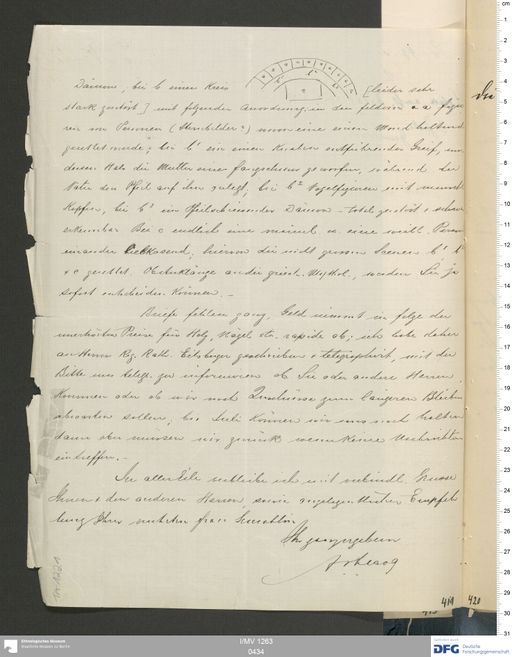 Dämon, bei b einen Kreis [leider sehr
stark zerstört] mit folgender Anordnung, in den Feldern a a Figu
ren von Personen (Sternbilder?) wovon eine einen Mond haltend
gerettet wurde; bei b¹ ein einen Knaben entführender Greif, um
dessen Hals die Mutter einen Fangschnur geworfen, während der
Vater den Pfeil auf ihn anlegt, bei b² Vogelfiguren mit mensch
Köpfen, bei b³ ein Pfeilschiessender Dämon total zerstört & schwer
erkennbar Bei c endlich eine männl. u. eine weibl. Person
einander liebkosend, hievon die nicht grossen Scenen b¹ b
& c gerettet. Ob Anklänge an die griech. Mythol., werden Sie ja
sofort entscheiden können. –
Briefe fehlen ganz, Geld nimmt in folge der
unerhörten Preise für Holz, Nägel etc. rapide ab; ich habe daher
an Herrn Reg. Rath geschrieben & telegraphirt, mit der
Bitte uns telegr. zu informiren ob Sie oder andere Herren
kommen oder ob wir noch Zuschüsse zum längeren Bleiben
abwarten sollen, bis Juli können wir uns noch halten
dann aber müssen wir zurück wenn keine Nachrichten
eintreffen. –
In aller Eile verbleibe ich mit verbindl. Grusse
Ihnen & den anderen Herren sowie angelegentlichster Empfeh
lung Ihrer verehrten Frau Gemahlin
Ihr ganz ergebener
Die
419 420
I/MV 1263
0434
Ethnologisches Museum
Staatliche Museen zu Berlin
DFG Deutsche
Forschungsgemeinschaft